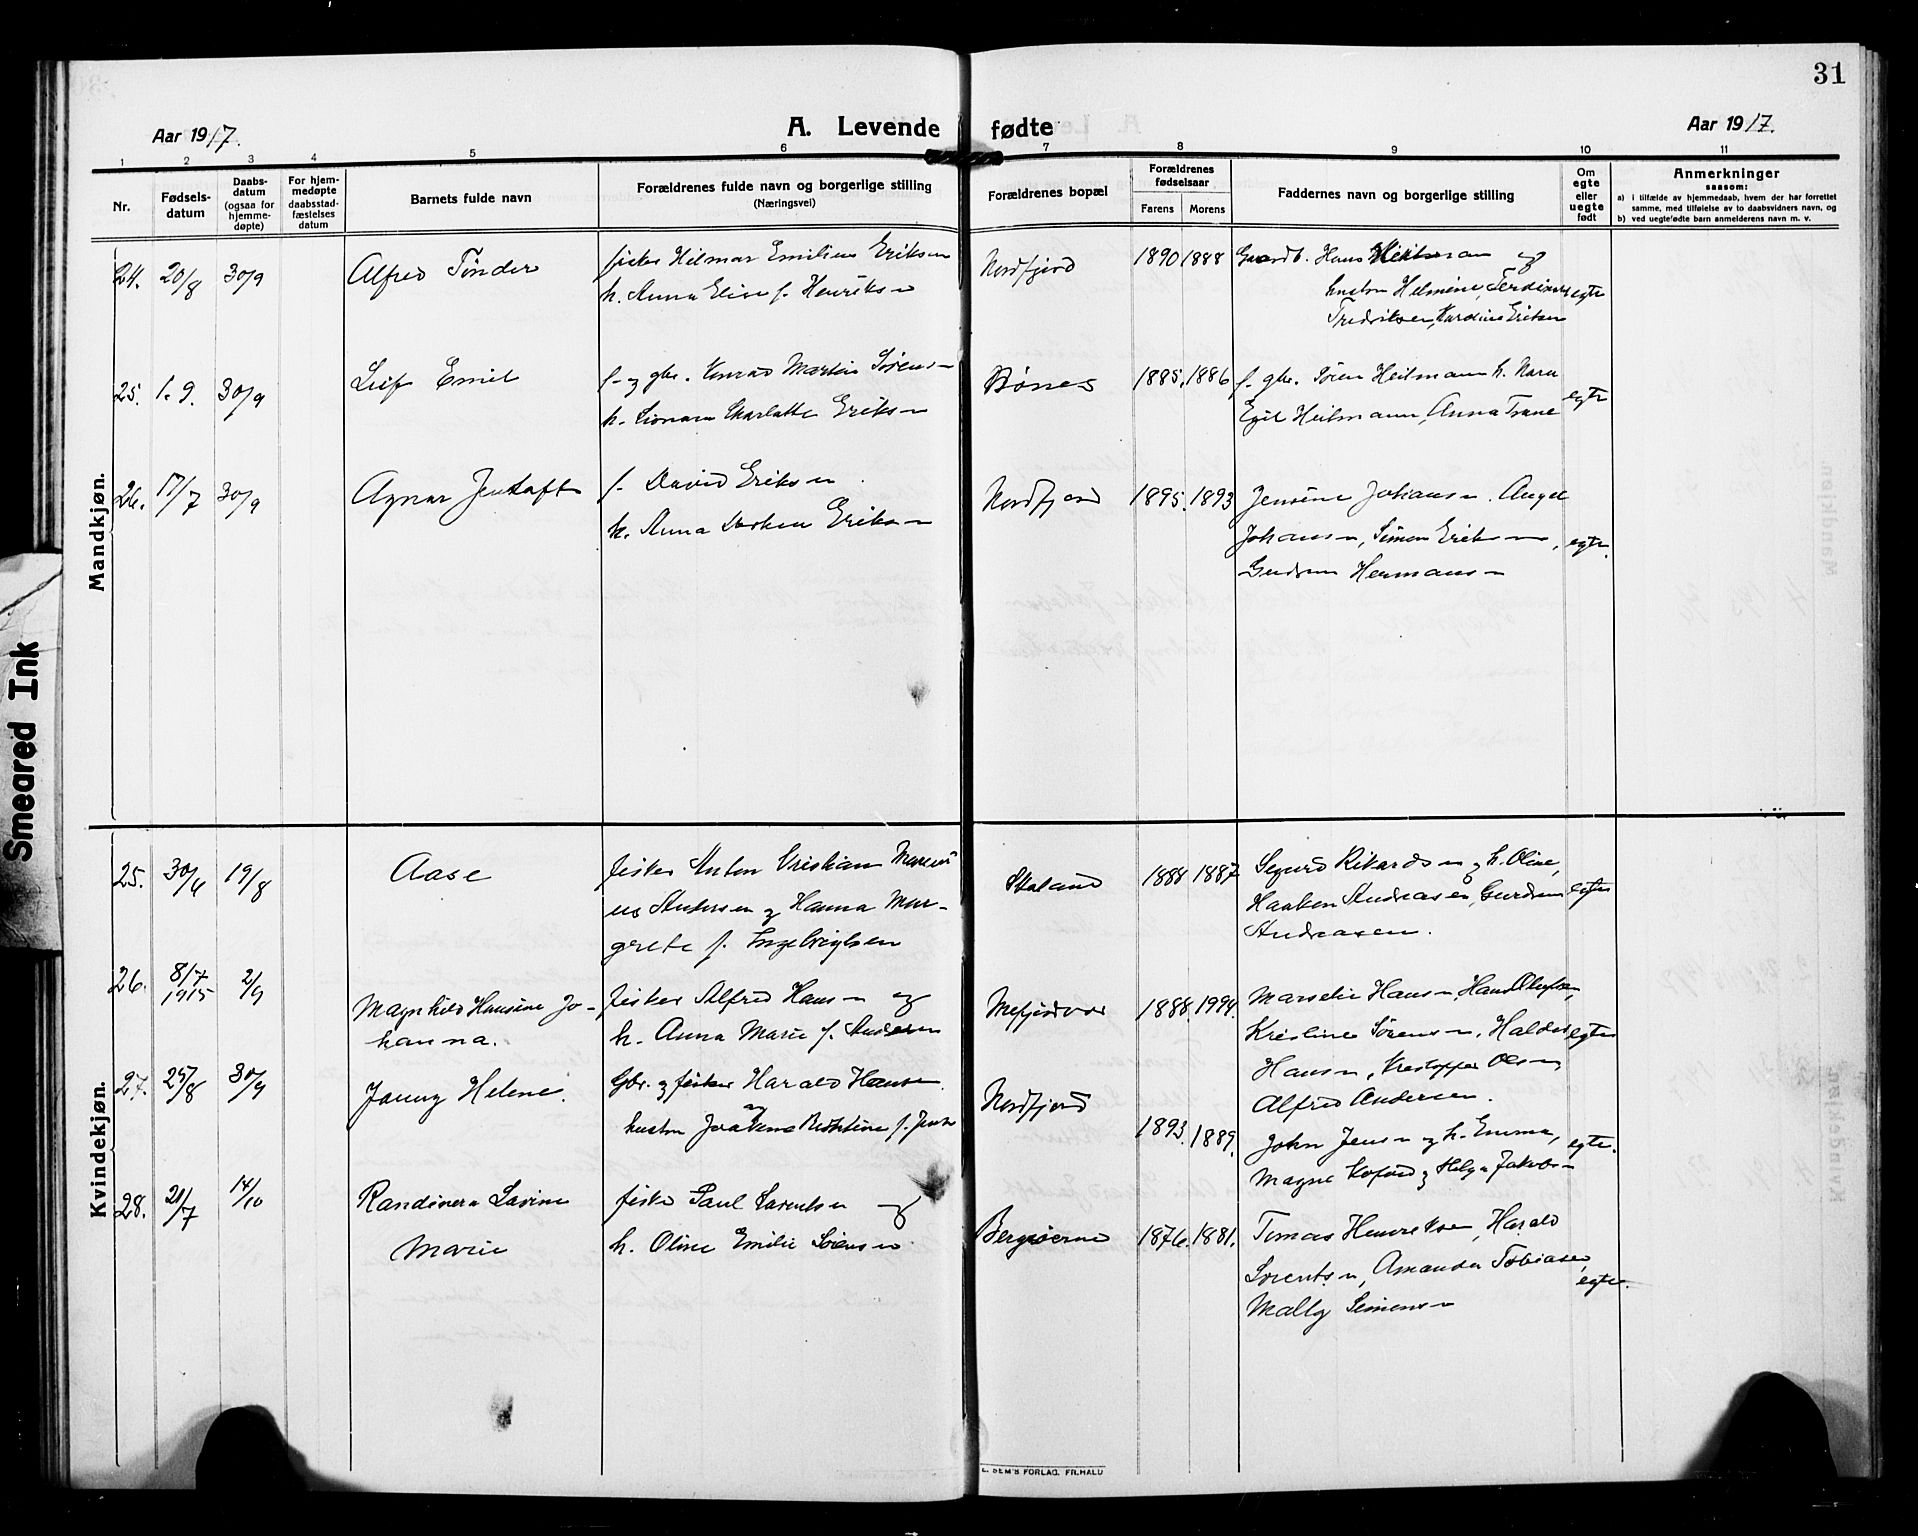 31
Aar 1917.
A. Levende fødte
Aar 1917.
1 2 3 4 5 6 7 8 9 10 11
Nr.
Fødsels-
datum
Daabs-
datum
(ogsaa for
hjemme-
døpte)
For hjem-
medøpte
daabsstad-
fæstelses
datum
Barnets fulde navn
Forældrenes fulde navn og borgerlige stilling
(Næringsvei)
Forældrenes bopæl
Forældrenes
fødselsaar
Farens
Morens
Faddernes navn og borgerlige stilling
Om
egte
eller
uegte
født
Anmerkninger
saasom:
a) i tilfælde av hjemmedaab, hvem der har forrettet
samme, med tilføielse av to daabsvidners navn, og
b) ved uegtefødte barn anmelderens navn m. v.
Mandkjøn.
24. 20/8 30/9 Alfred Tønder
fisker Hilmar Emilius Eriksen
h. Anna Elise f. Henriksen
Nordfjord 1890 1888
Gaardb. Hans og
hustru Helmine,
Fredriksen, Eriksen
egte
25. 1.9. 30/9 Leif Emil
f. og gbr. Konrad Martin Sørensen
h. Eriksen
Bønes 1885. 1886
f. gbr. Søren Heitmann h.
Egil Heitmann, Anna Trane
egte
26. 17/7 30/9 Agnar Jentoft
f. David Eriksen
h. Anna Eriksen
Nordfjord 1895. 1893
Jensine Johansen. Angel
Johansen, Simon Eriksen,
Gudrun Hermansen
egte.
Kvindekjøn.
25. 30/4 19/8 Aase
fisker Anton Kristian
Andersen og Hanna Mar-
grete f. Ingebrigtsen
Skaland 1888 1887
Sigurd Rikardsen og h. Oline,
Haakon Andreasen, Gudrun
Andreasen.
egte
26. 8/7 1915 2/9
Magnhild Hansine Jo-
hanna.
fisker Alfred Hansen og
h. Anna Marie f. Andersen
Mefjordvær 1888. 1994.
Marselie Hansen, Hans Olufsen,
Kristine Sørensen, Haldis
Hansen, Kristoffer Olsen
Alfred Andersen.
egte
27. 25/8 30/9 Jenny Helene.
Gbr. og fisker Harald Hansen
hustru
Nordfjord 1893. 1889.
John Jensen og h. Emma,
Magne Kofoed og Helga Jakobsen
egte.
28. 21/7 14/10 Randinera Lavine
Marie
fisker Paul Lorentsen og
h. Oline Emilie Sørensen.
Bergsøerne 1876. 1881.
Tomas Henriksen, Harald
Lorentsen, Amanda Tobiasen,
Mally Simonsen
egte.
Smeared Ink
E. SEM'S FORLAG. FR.HALD